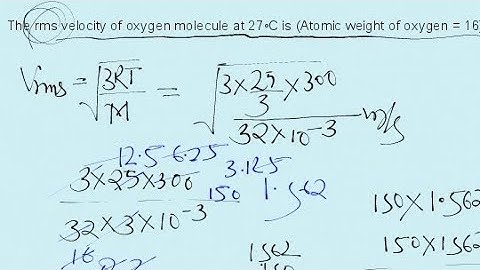 The rms velocity of oxygen molecule at 27∘C is (Atomic weight of oxygen = 16)
Vrms = √(3RT/M) = √((3×25/3×300)/(32×10-3)) m/s
12.5 6.25 3.125
3×25×300
150 1.562
32×3×10-3
150×1.562
16
1562
150×1562